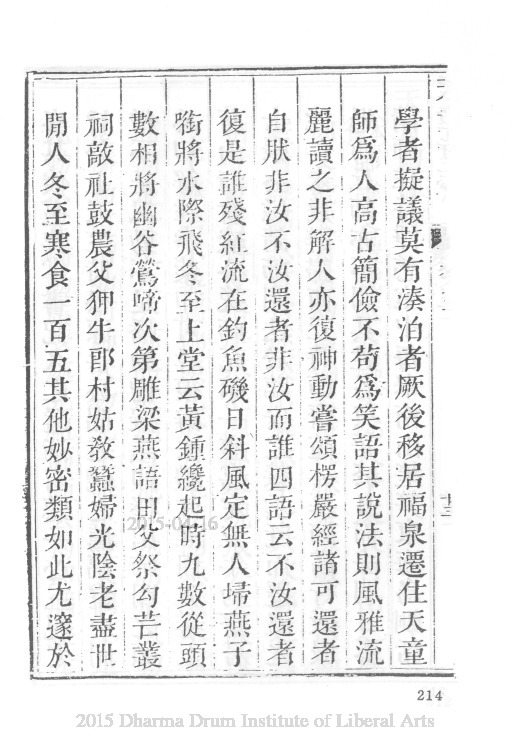 學者擬議莫有湊泊者厥後移居福泉遷住天童
師爲人高古簡儉不苟爲笑語其說法則風雅流
麗讀之非解人亦復神動嘗頌楞嚴經諸可還者
自狀非汝不汝還者非汝而誰四語云不汝還者
復是誰殘紅流在釣魚磯日斜風定無人埽燕子
銜將水際飛冬至上堂云黃鍾纔起時九數從頭
數相將幽谷鶯啼次第雕梁燕語田父祭勾芒叢
祠敲社鼓農父狎牛郎村姑敎蠶婦光陰老盡世
閒人冬至寒食一百五其他妙密類如此尤邃於
214
2015 Dharma Drum Institute of Liberal Arts